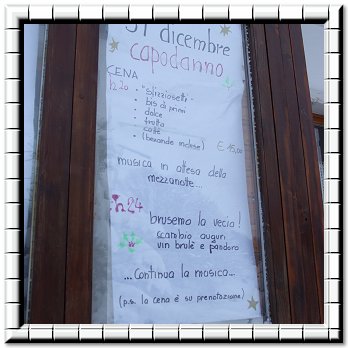 31 dicembre
capodanno
CENA
h20 • "slizziosetti"
• bis di primi
• dolce
• frutta
• caffè
• (bevande incluse) € 15,00
musica in attesa della
mezzanotte...
h24
brusemo la vecia!
scambio auguri
vin brulè e pandoro
...Continua la musica...
(p.s. la cena è su prenotazione)